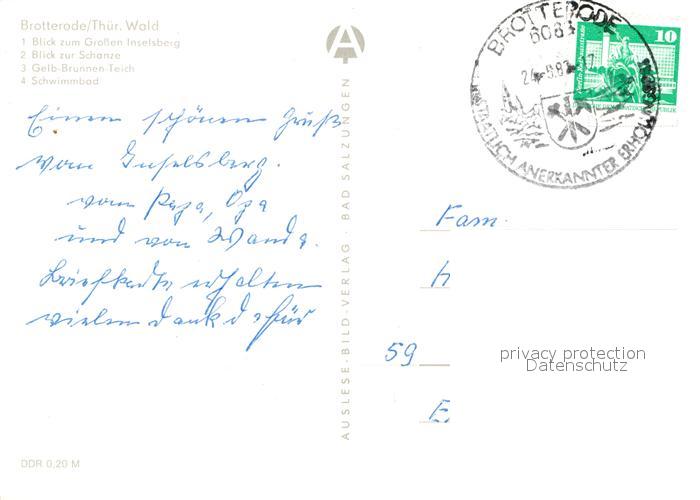 Brotterode/Thür. Wald
1 Blick zum Großen Inselsberg
2 Blick zur Schanze
3 Gelb-Brunnen-Teich
4 Schwimmbad
Einen schönen Gruß
vom Inselsberg.
vom Papa, Opa
und von Wanda.
Briefkarte erhalten
vielen dank dafür
DDR 0,20 M
AUSLESE-BILD-VERLAG · BAD SALZUNGEN
BROTTERODE
6083
STAATLICH ANERKANNTER ERHOLUNGSORT
10
Fam.
h
59
E
privacy protection
Datenschutz